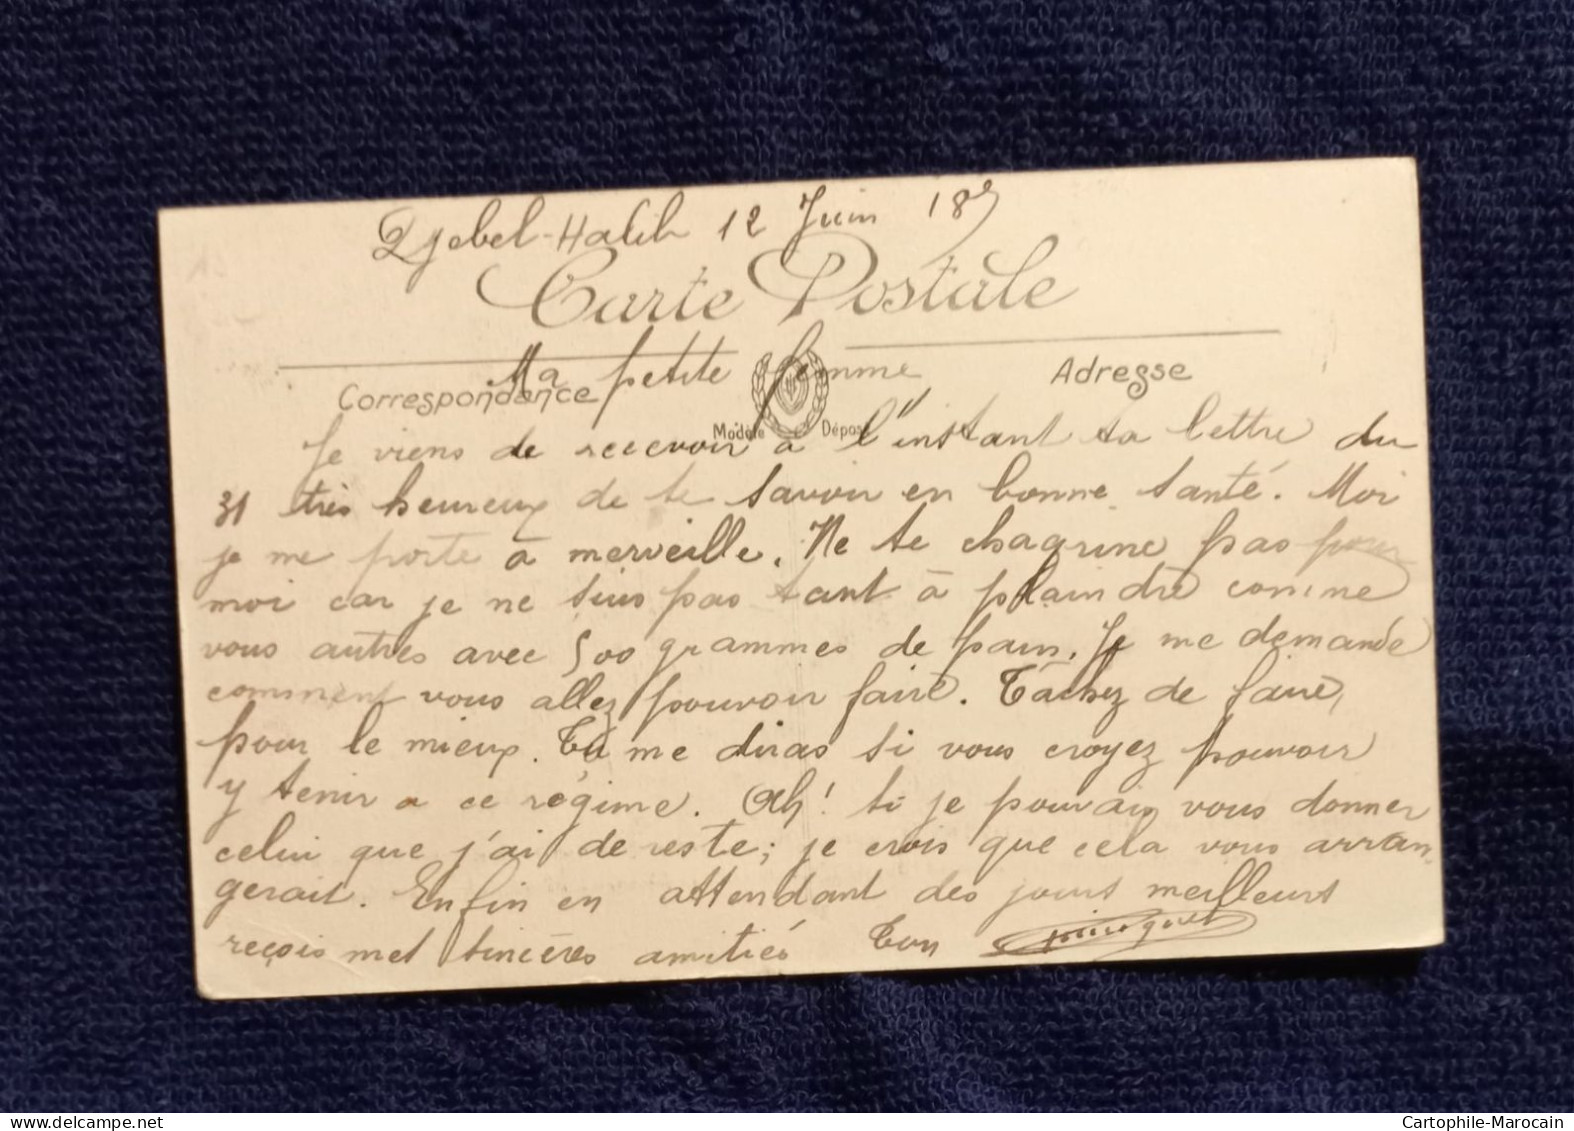 Djebel-Halib 12 Juin 18
Carte Postale
Ma petite femme
Correspondance
Adresse
Modèle Déposé
Je viens de recevoir à l'instant ta lettre du
31 très heureux de te savoir en bonne santé. Moi
je me porte à merveille. Ne te chagrine pas pour
moi car je ne suis pas tant à plaindre comme
vous autres avec 500 grammes de pain. Je me demande
comment vous allez pouvoir faire. Tâchez de faire,
pour le mieux. Tu me diras si vous croyez pouvoir
y tenir a ce régime. Ah! si je pouvais vous donner
celui que j'ai de reste; je crois que cela vous arran-
gerait. Enfin en attendant des jours meilleurs
reçois mes sincères amitiés Ton
delcampe.net
Cartophile-Marocain